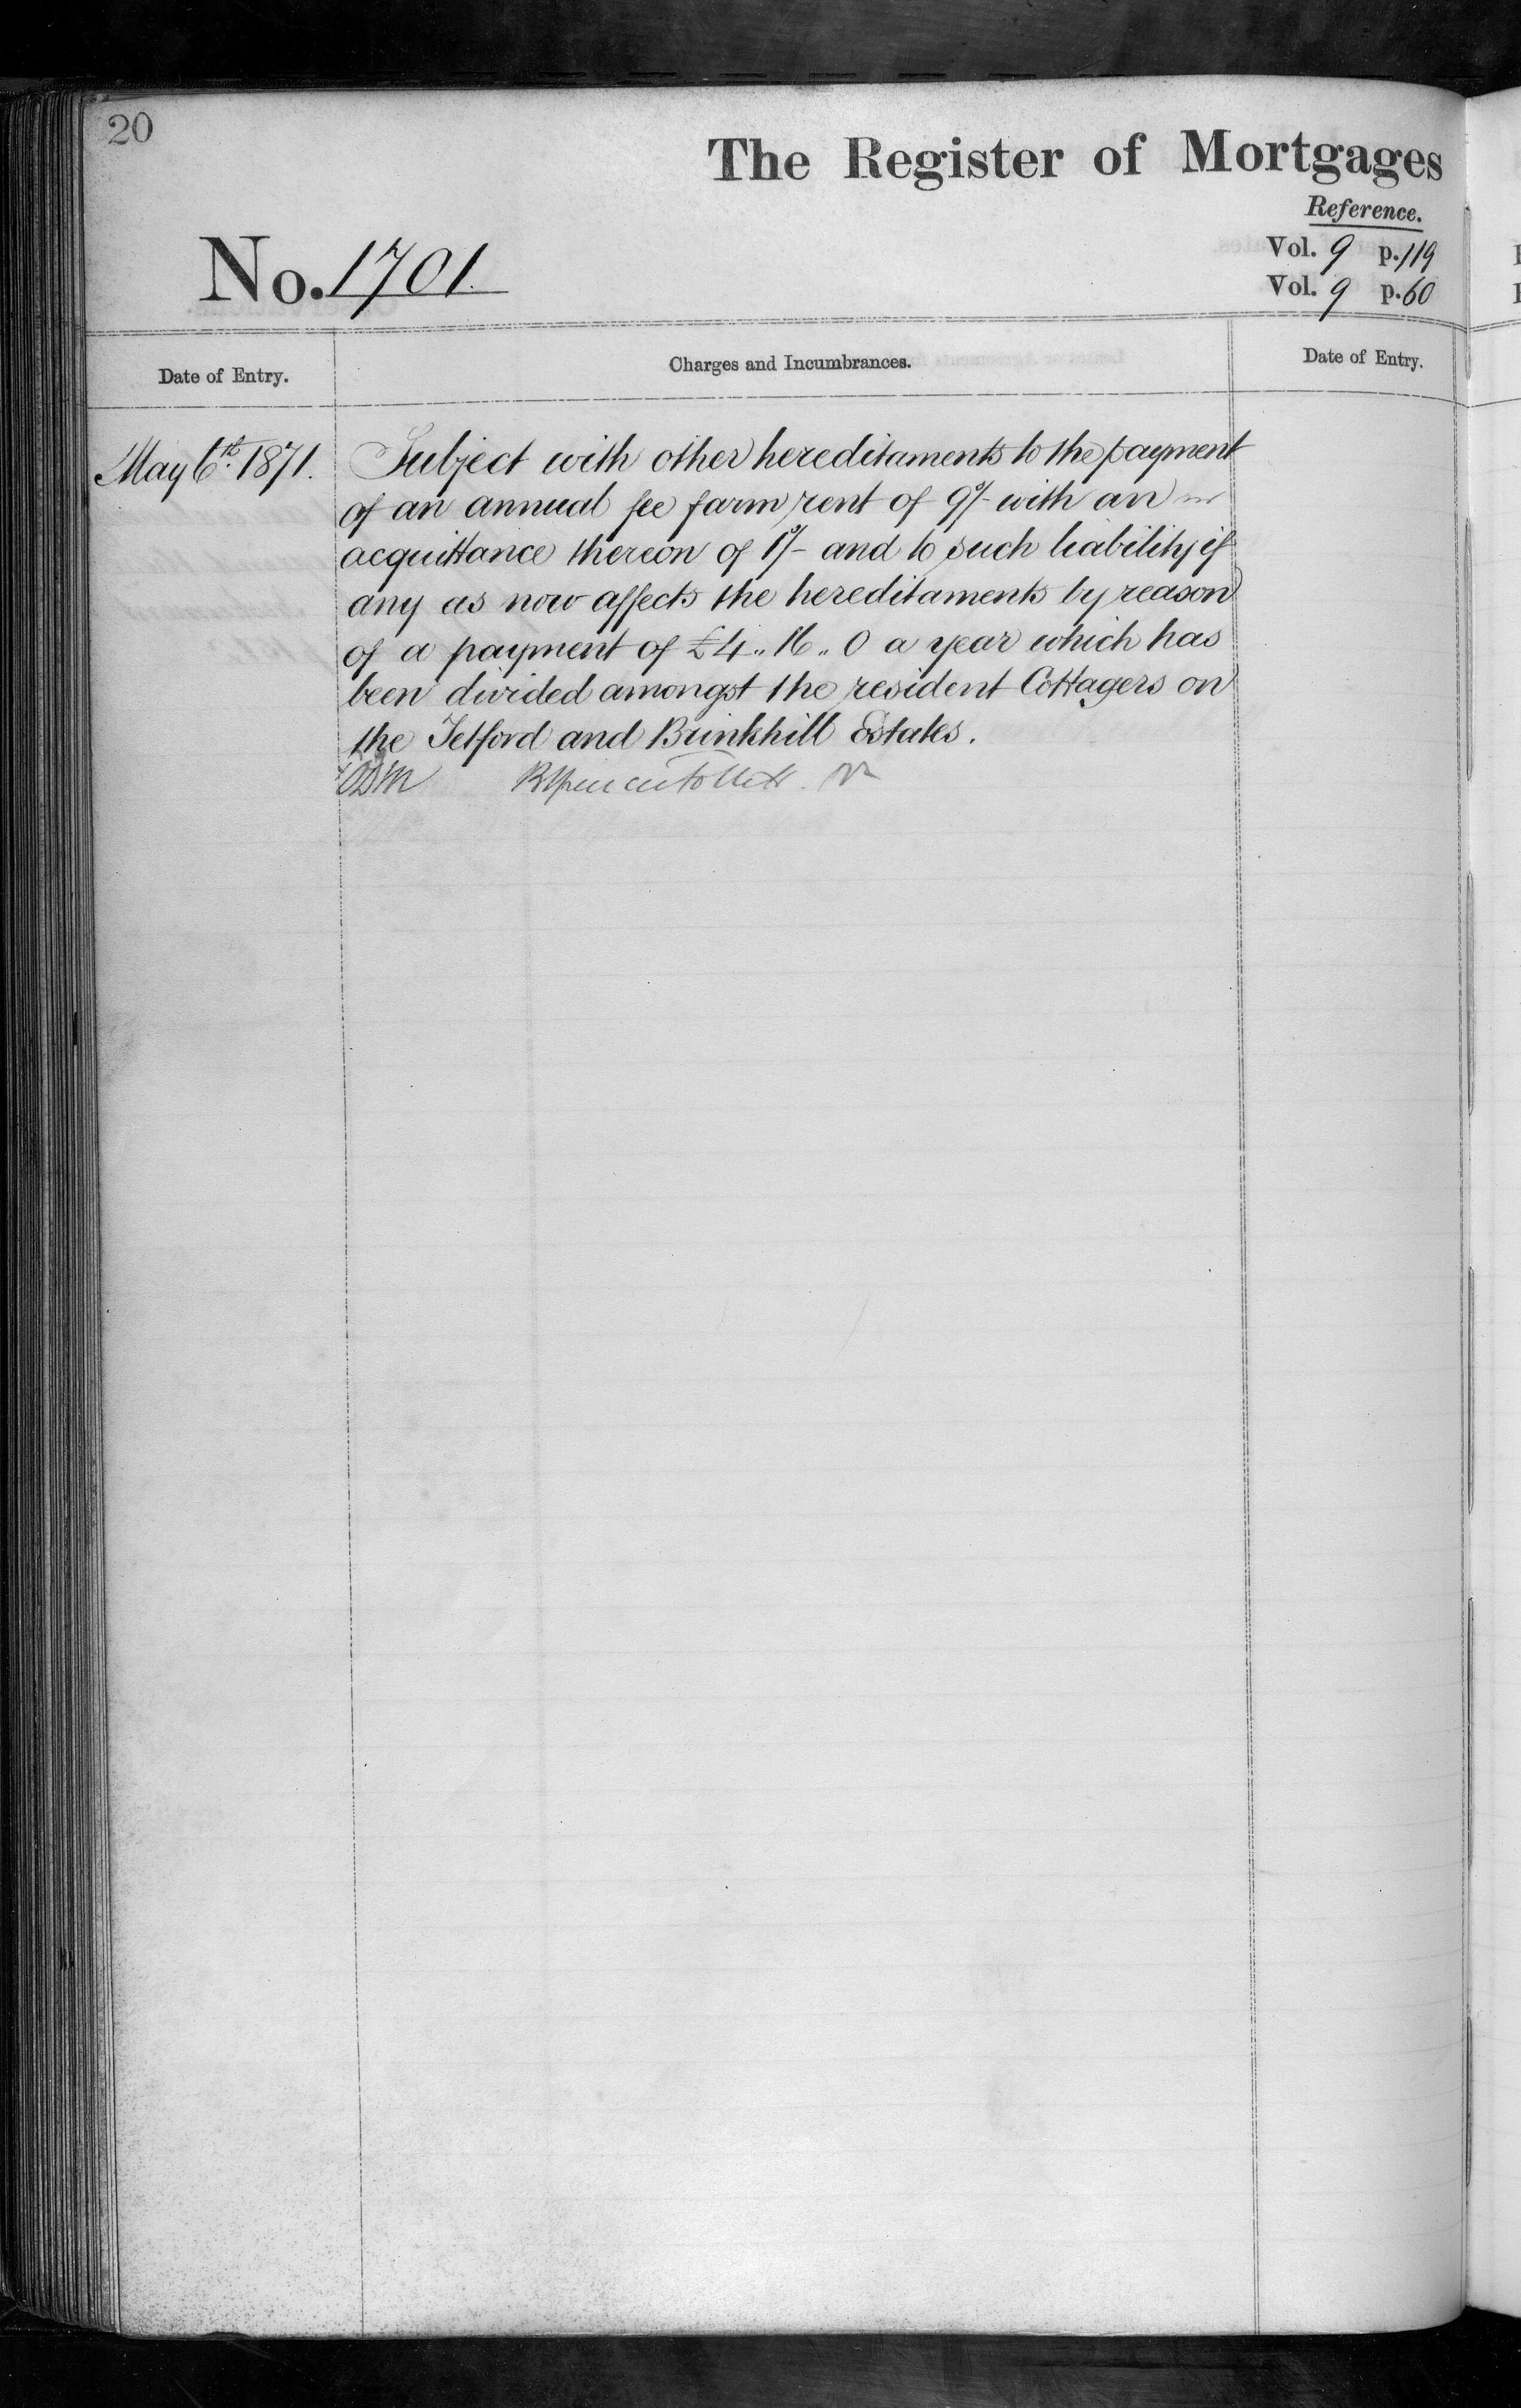 20
The Register of Mortgages
Reference.
No. 1701.
Vol. 9 p. 119
Vol. 9 p. 60
Date of Entry.
Charges and Incumbrances.
Date of Entry.
May 6th. 1871.
Subject with other hereditaments to the payment
of an annual fee farm rent of 9/- with an
acquittance thereon of 1/- and to such liability if
any as now affects the hereditaments by reason
of a payment of £4 „ 16 „ 0 a year which has
been divided amongst the resident Cottagers on
the Tetford and Brinkhill Estates.